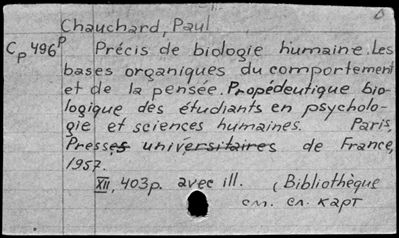 Chauchard, Paul
Cp 496P Précis de biologie humaine. Les
bases organiques du comportement
et de la pensée. Propédeutique bio-
logique des étudiants en psycholo-
gie et sciences humaines. Paris,
Presses universitaires de France,
1957.
XII, 403p. avec ill. (Bibliothèque
см. сл. карт